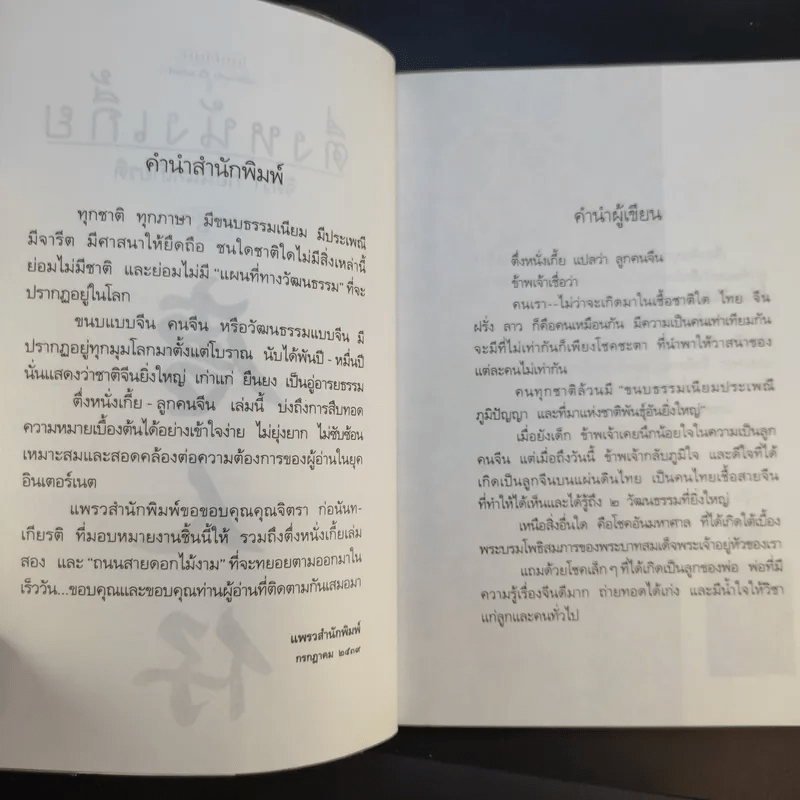 คำนำสำนักพิมพ์
ทุกชาติ ทุกภาษา มีขนบธรรมเนียม มีประเพณี
มีจารีต มีศาสนาให้ยึดถือ ชนใดชาติใดไม่มีสิ่งเหล่านี้
ย่อมไม่มีชาติ และย่อมไม่มี “แผนที่ทางวัฒนธรรม” ที่จะ
ปรากฏอยู่ในโลก
ขนบแบบจีน คนจีน หรือวัฒนธรรมแบบจีน มี
ปรากฏอยู่ทุกมุมโลกมาตั้งแต่โบราณ นับได้พันปี - หมื่นปี
นั่นแสดงว่าชาติจีนยิ่งใหญ่ เก่าแก่ ยืนยง เป็นอู่อารยธรรม
ตึ่งหนั่งเกี้ย - ลูกคนจีน เล่มนี้ บ่งถึงการสืบทอด
ความหมายเบื้องต้นได้อย่างเข้าใจง่าย ไม่ยุ่งยาก ไม่ซับซ้อน
เหมาะสมและสอดคล้องต่อความต้องการของผู้อ่านในยุค
อินเตอร์เนต
แพรวสำนักพิมพ์ขอขอบคุณคุณจิตรา ก่อนันท-
เกียรติ ที่มอบหมายงานชิ้นนี้ให้ รวมถึงตึ่งหนั่งเกี้ยเล่ม
สอง และ “ถนนสายดอกไม้งาม” ที่จะทยอยตามออกมาใน
เร็ววัน...ขอบคุณและขอบคุณท่านผู้อ่านที่ติดตามกันเสมอมา
แพรวสำนักพิมพ์
กรกฎาคม ๒๕๓๙
คำนำผู้เขียน
ตึ่งหนั่งเกี้ย แปลว่า ลูกคนจีน
ข้าพเจ้าเชื่อว่า
คนเรา--ไม่ว่าจะเกิดมาในเชื้อชาติใด ไทย จีน
ฝรั่ง ลาว ก็คือคนเหมือนกัน มีความเป็นคนเท่าเทียมกัน
จะมีที่ไม่เท่ากันก็เพียงโชคชะตา ที่นำพาให้วาสนาของ
แต่ละคนไม่เท่ากัน
คนทุกชาติล้วนมี “ขนบธรรมเนียมประเพณี
ภูมิปัญญา และที่มาแห่งชาติพันธุ์อันยิ่งใหญ่”
เมื่อยังเด็ก ข้าพเจ้าเคยนึกน้อยใจในความเป็นลูก
คนจีน แต่เมื่อถึงวันนี้ ข้าพเจ้ากลับภูมิใจ และดีใจที่ได้
เกิดเป็นลูกจีนบนแผ่นดินไทย เป็นคนไทยเชื้อสายจีน
ที่ทำให้ได้เห็นและได้รู้ถึง ๒ วัฒนธรรมที่ยิ่งใหญ่
เหนือสิ่งอื่นใด คือโชคอันมหาศาล ที่ได้เกิดใต้เบื้อง
พระบรมโพธิสมภารของพระบาทสมเด็จพระเจ้าอยู่หัวของเรา
แถมด้วยโชคเล็กๆ ที่ได้เกิดเป็นลูกของพ่อ พ่อที่มี
ความรู้เรื่องจีนดีมาก ถ่ายทอดได้เก่ง และมีน้ำใจให้วิชา
แก่ลูกและคนทั่วไป